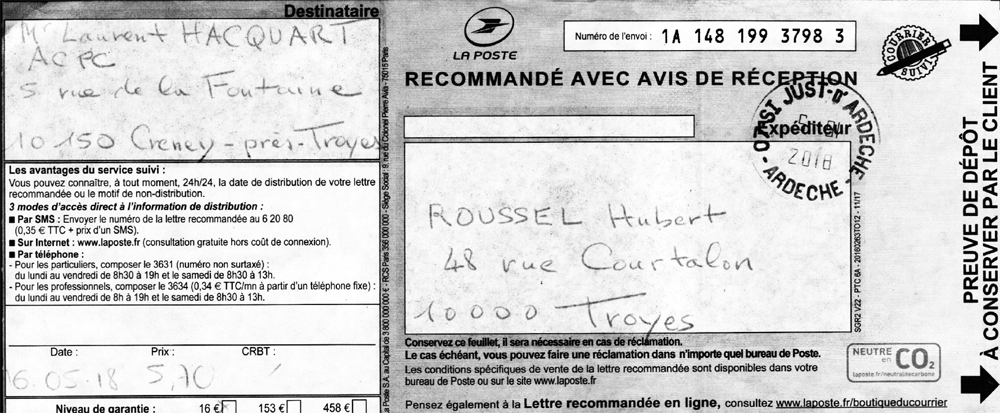 Destinataire
Mr Laurent HACQUART
ACPC
5 rue de la Fontaine
10 150 Creney-près-Troyes
Les avantages du service suivi :
Vous pouvez connaître, à tout moment, 24h/24, la date de distribution de votre lettre
recommandée ou le motif de non-distribution.
3 modes d'accès direct à l'information de distribution :
■ Par SMS : Envoyer le numéro de la lettre recommandée au 6 20 80
(0,35 € TTC + prix d'un SMS).
■ Sur Internet : www.laposte.fr (consultation gratuite hors coût de connexion).
■ Par téléphone :
- Pour les particuliers, composer le 3631 (numéro non surtaxé) :
du lundi au vendredi de 8h30 à 19h et le samedi de 8h30 à 13h.
- Pour les professionnels, composer le 3634 (0,34 € TTC/mn à partir d'un téléphone fixe) :
du lundi au vendredi de 8h à 19h et le samedi de 8h30 à 13h.
Date : Prix : CRBT :
6.05.18 5,10
Niveau de garantie : 16 € 153 € 458 €
La Poste S.A. au Capital de 3 800 000 000 € - RCS Paris 356 000 000 - Siège Social : 9, rue du Colonel Pierre Avia - 75015 Paris
LA POSTE
Numéro de l'envoi : 1A 148 199 3798 3
COURRIER
SUIVI
RECOMMANDÉ AVEC AVIS DE RÉCEPTION
Expéditeur
07 ST JUST-D'ARDECHE
2018
- ARDECHE -
ROUSSEL Hubert
48 rue Courtalon
10000 Troyes
SGR2 V22 - PTC 6A - 20160263TO12 - 11/17
Conservez ce feuillet, il sera nécessaire en cas de réclamation.
Le cas échéant, vous pouvez faire une réclamation dans n'importe quel bureau de Poste.
Les conditions spécifiques de vente de la lettre recommandée sont disponibles dans votre
bureau de Poste ou sur le site www.laposte.fr
NEUTRE
en CO2
laposte.fr/neutralitecarbone
Pensez également à la Lettre recommandée en ligne, consultez www.laposte.fr/boutiqueducourrier
PREUVE DE DÉPÔT
À CONSERVER PAR LE CLIENT